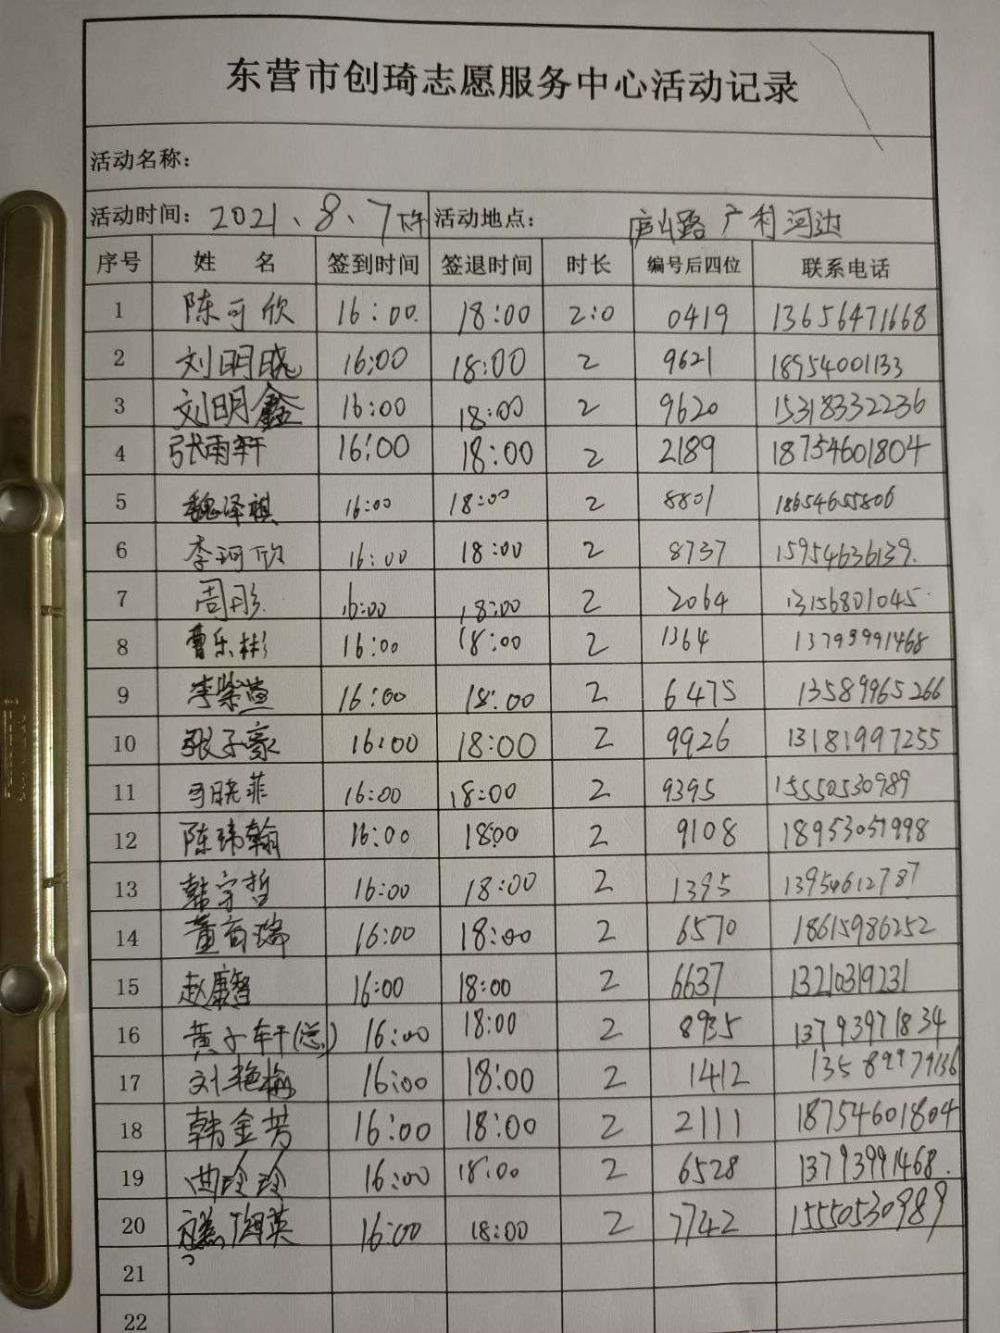 东营市创琦志愿服务中心活动记录
活动名称：
活动时间： 2021、8、7下午 活动地点： 庐山路 广利河边
序号 姓 名 签到时间 签退时间 时长 编号后四位 联系电话
1 陈可欣 16:00. 18:00 2:0 0419 13656471668
2 刘明晓 16:00 18:00 2 9621 18954001133
3 刘明鑫 16:00 18:00 2 9620 15318332236
4 张雨轩 16:00 18:00 2 2189 18754601804
5 魏泽祺 16:00 18:00 2 8801 18654655806
6 李珂欣 16:00 18:00 2 8737 15954636139.
7 周彤 16:00 18:00 2 2064 13156801045
8 曹乐彬 16:00 18:00 2 1364 13793991468
9 李紫萱 16:00 18:00 2 6475 13589965266
10 张子豪 16:00 18:00 2 9926 13181997255
11 晓菲 16:00 18:00 2 9395 15550530989
12 陈玮翰 16:00 18:00 2 9108 18953051998
13 韩宇哲 16:00 18:00 2 1395 13954612787
14 董百瑞 16:00 18:00 2 6570 18615986252
15 赵康智 16:00 18:00 2 6637 13210319231
16 黄子轩(总) 16:00 18:00 2 8935 13793971834
17 刘艳梅 16:00 18:00 2 1412 13589979136
18 韩金芳 16:00 18:00 2 2111 18754601804
19 曲玲玲 16:00 18:00 2 6528 13793991468.
20 16:00 18:00 2 7742 15550530989
21
22